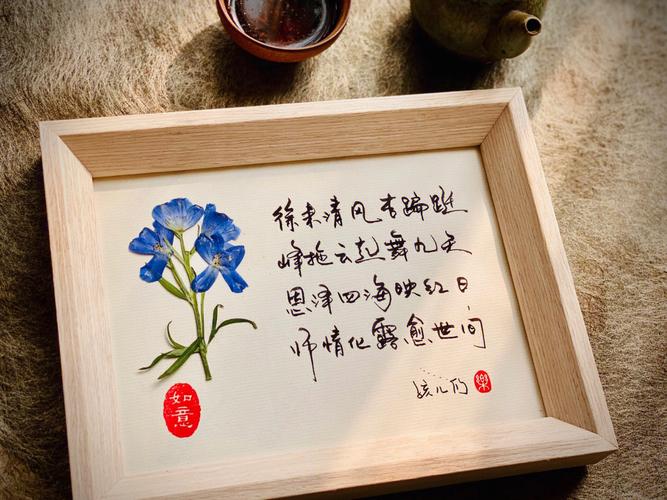 徐来清风杏蹁跹
峰拖云起舞九天
恩泽四海映红日
师情化露愈世间
孩儿乃
樂
如意